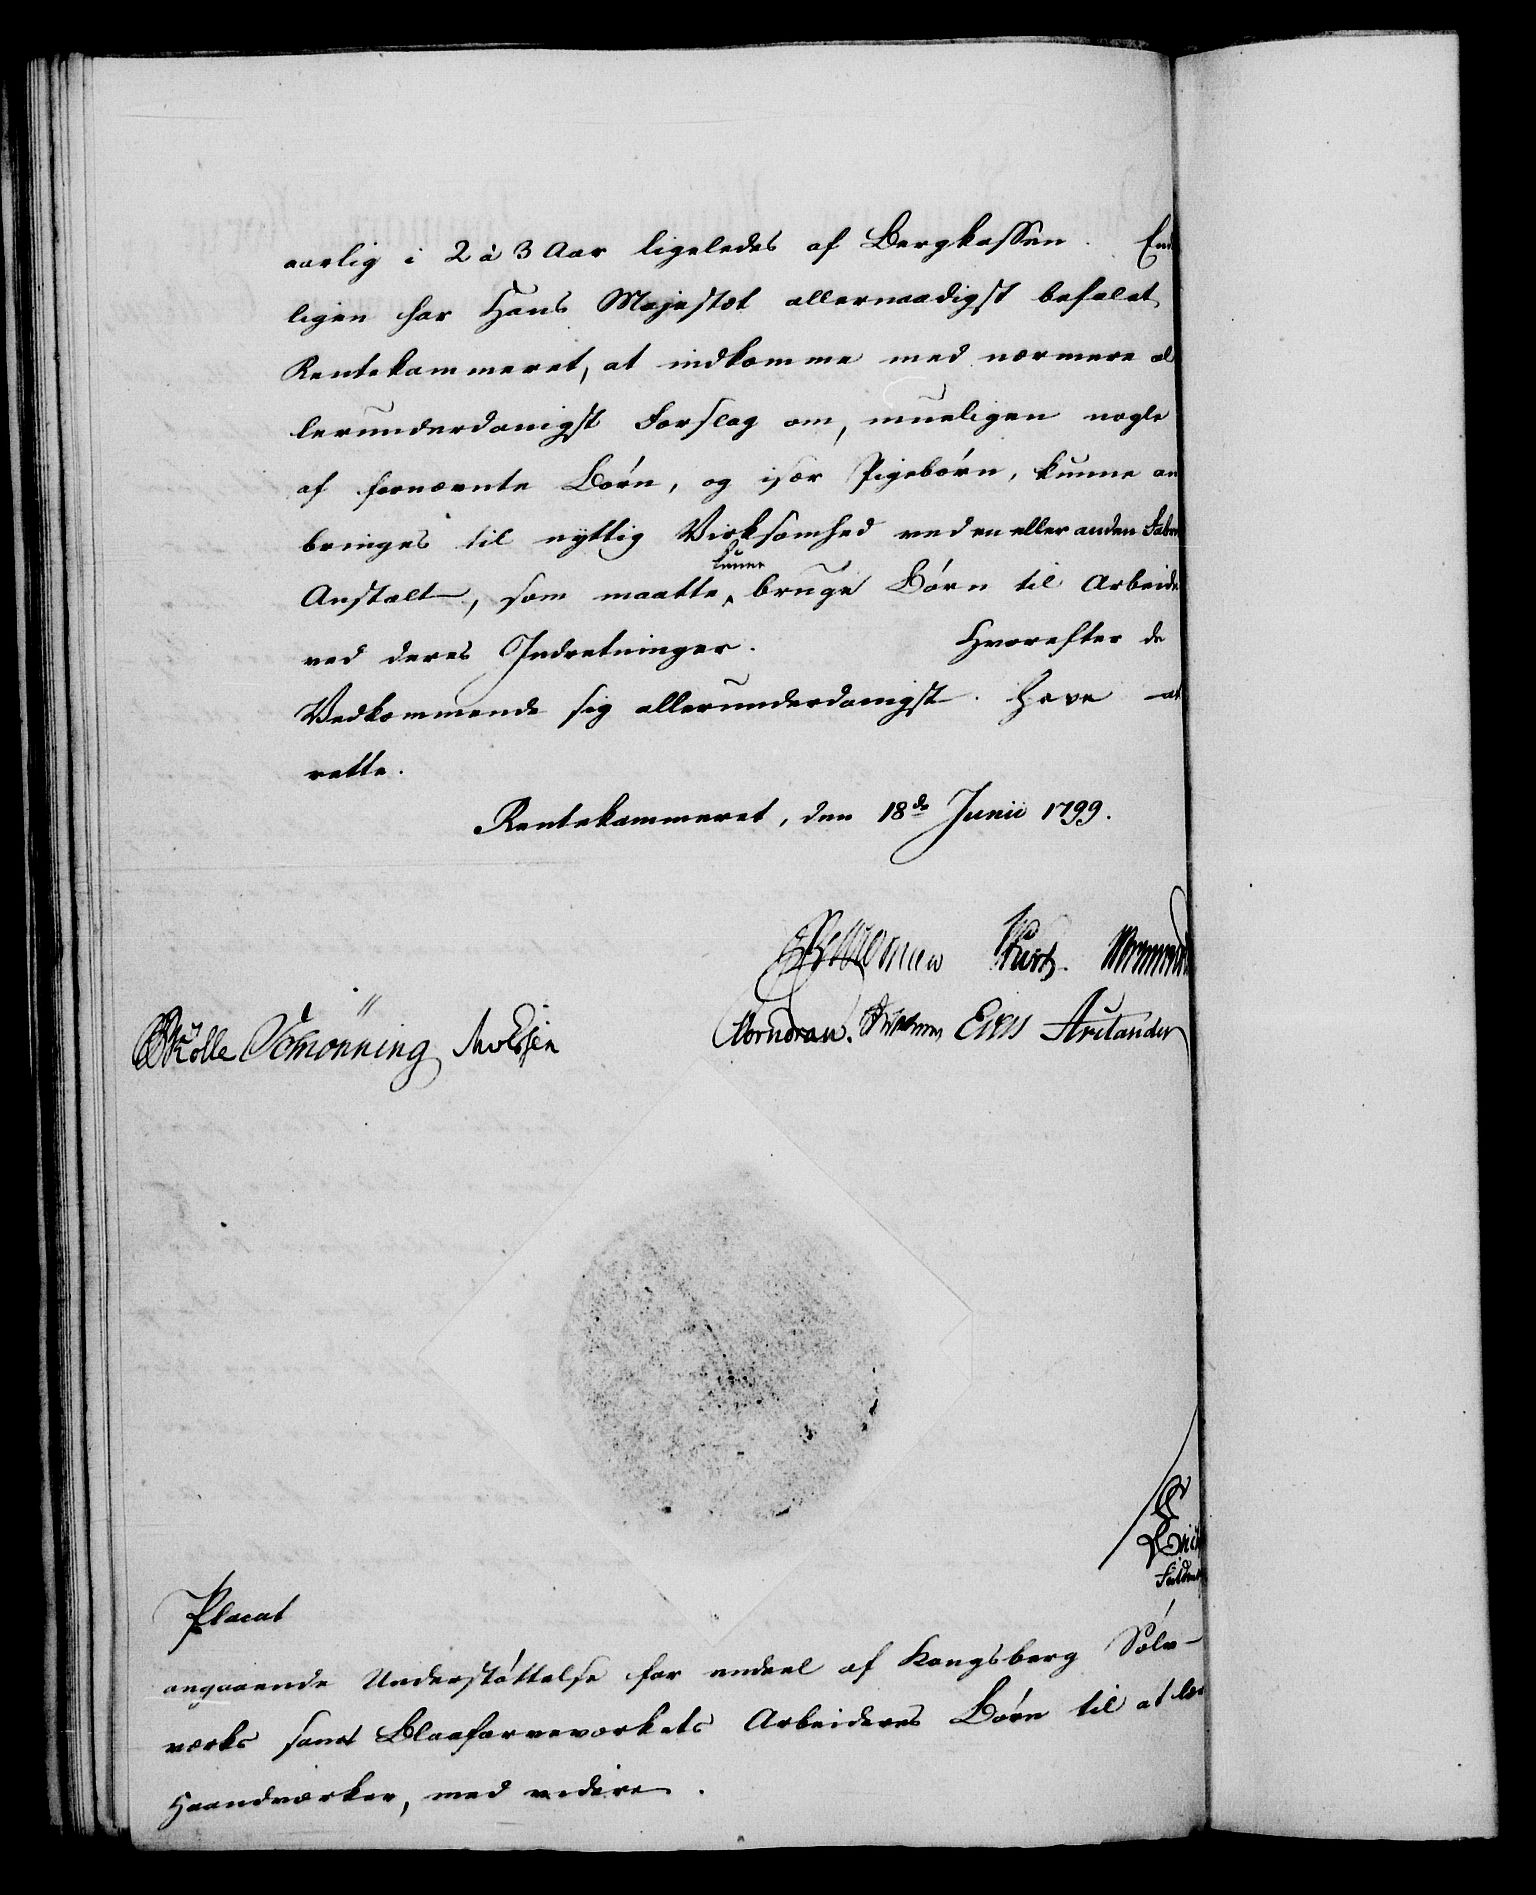 aarlig i 2 à 3 Aar ligeledes af Bergkassen. End
ligen har Hans Majestæt allernaadigst befalet
Rentekammeret, at indkomme med nærmere al
lerunderdanigst Forslag om, mueligen nogle
af fornævnte Børn, og især Pigebørn, kunne an
bringes til nyttig Virksomhed ved en eller anden Fabri
Anstalt, som maatte kunne bruge Børn til Arbeide
ved deres Indretninger. Hvorefter de
Vedkommende sig allerunderdanigst have at
rette.
Rentekammeret, den 18de Junii 1799.
Wormskiold
Rølle Schønning Knudsen Eirs Stricander
Placat
angaaende Understøttelse for endeel af Kongsberg Sølv-
værks samt Blaafarveværkets Arbeideres Børn til at lær
Haandværker, med videre.